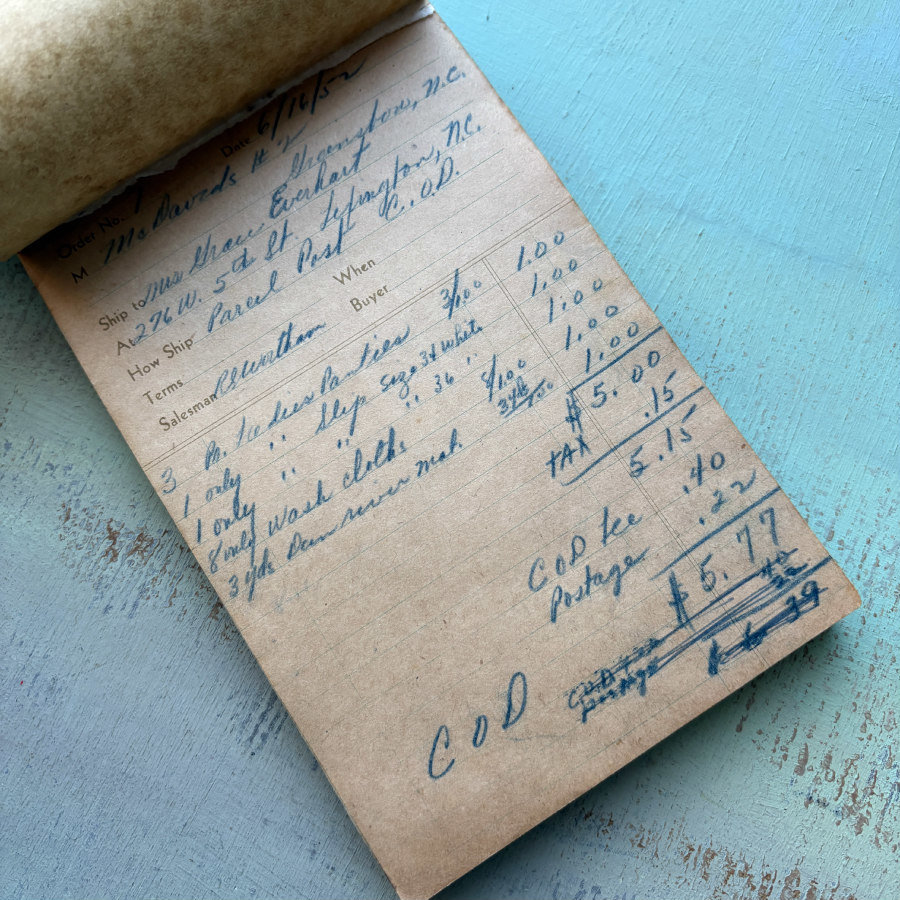 Date 6/16/52
Order No.
M McDavids # 2 Greensboro, N.C.
Ship to Mrs Grace Everhart
At 276 W. 5th St. Lexington, N.C.
How Ship Parcel Post C.O.D.
Terms When
Salesman Buyer
3 Pr. Ladies Panties 3/1.00 1.00
1 only " Slip Size 34 white 1.00
1 only " " " 36 " 1.00
8 only Wash cloths 8/1.00 1.00
3 yds Dan river mat. 3 yds 1.00
$5.00
TAX .15
5.15
COD fee .40
Postage .22
$5.77
COD